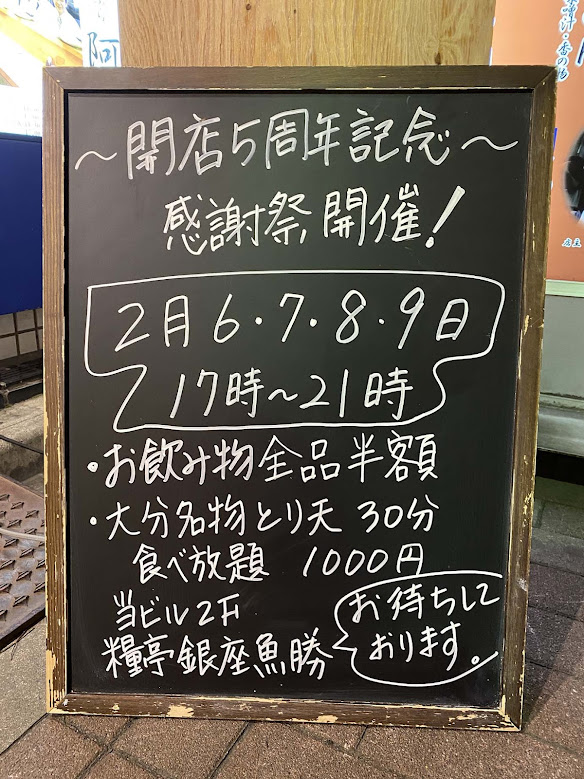 〜開店5周年記念〜
感謝祭開催！
2月6・7・8・9日
17時〜21時
・お飲み物全品半額
・大分名物とり天30分
食べ放題 1000円
当ビル2F
糧亭銀座魚勝
お待ちして
おります。
阿
味噌汁・香の物
店主